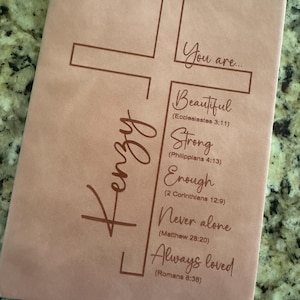 You are..
Beautiful
(Ecclesiastes 3:11)
Strong
(Philippians 4:13)
Enough
(2 Corinthians 12:9)
Never alone
(Matthew 28:20)
Always loved
(Romans 8:38)
Kenzy